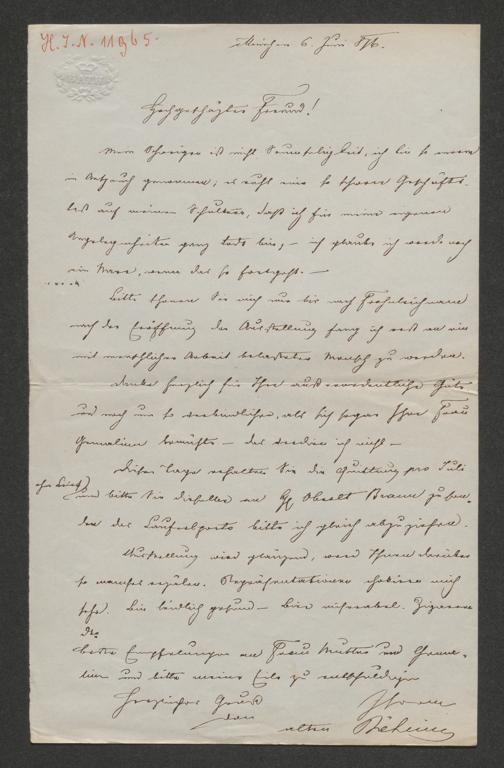 H. I. N. 11965.
München 6. Juni 876.
Hochgeschäzter Freund!
Mein Schweigen ist nicht Saumseligkeit, ich bin so enorm
in Anspruch genommen; es ruht eine so schwere Geschäfts-
last auf meinen Schultern, daß ich für meine eigenen
Angelegenheiten ganz todt bin, – ich glaube ich werde noch
ein Narr, wenn das so fortgeht. –
Bitte schonen Sie mich nur bis nach Frohnleichnam
nach der Eröffnung der Ausstellung fang ich erst an ein
mit menschlicher Arbeit belasteter Mensch zu werden.
Danke herzlich für Ihre außerordentliche Güte
und noch um so verbindlicher, als sich sogar Ihre Frau
Gemalin bemühte – das verdien ich nicht –
Dieser Tage erhalten Sie die Quittung pro Juli
und bitte Sie dieselbe an Oberlt Braun zu sen-
den das Briefporto bitte ich gleich abzuziehen.
Ausstellung wird glänzend, werd Ihnen darüber
so manches erzälen. Repräsentationen
sehr. Bin leidlich gesund – Bier miserabel. Zigarren
dto
beste Empfelungen an Frau Mutter und Gema-
lin und bitte meine Eile zu entschuldigen
Herzlicher Gruß
von Ihrem
alten